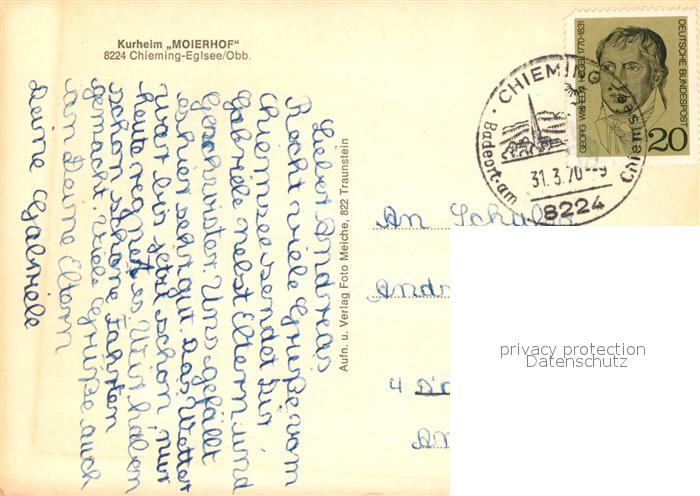 Kurheim „MOIERHOF“
8224 Chieming-Eglsee/Obb.
Lieber Andreas
Recht viele Grüße vom
Chiemsee sendet dir
Gabriele nebst Eltern und
Geschwister. Uns gefällt
es hier sehr gut. Das Wetter
war bis jetzt schon nur
heute regnet es. Wir haben
schon schöne Fahrten
gemacht. Viele Grüße auch
an Deine Eltern
Deine Gabriele
Aufn. u. Verlag Foto Meiche, 822 Traunstein
GEORG WILHELM HEGEL 1770-1831
DEUTSCHE BUNDESPOST
20
CHIEMING
Badeort am Chiemsee
31.3.70-9
8224
An Schüler
Andr
4
An
privacy protection
Datenschutz